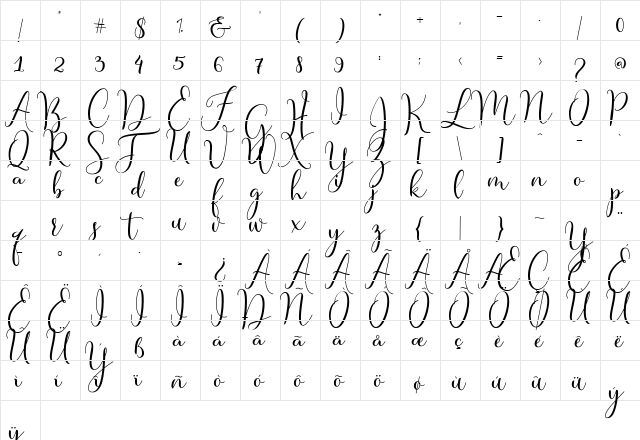 ! " # $ % & ' ( ) * + , - . / 0
1 2 3 4 5 6 7 8 9 : ; < = > ? @
A B C D E F G H I J K L M N O P
Q R S T U V W X Y Z [ \ ] ^ _ `
a b c d e f g h i j k l m n o p
q r s t u v w x y z { | } ~ Ÿ ¨
¿ À Á Â Ã Ä Å Æ Ç È É
Ê Ë Ì Í Î Ï Ð Ñ Ò Ó Ô Õ Ö Ø Ù Ú
Û Ü Ý ß à á â ã ä å æ ç è é ê ë
ì í î ï ñ ò ó ô õ ö ø ù ú û ü ý
ÿ